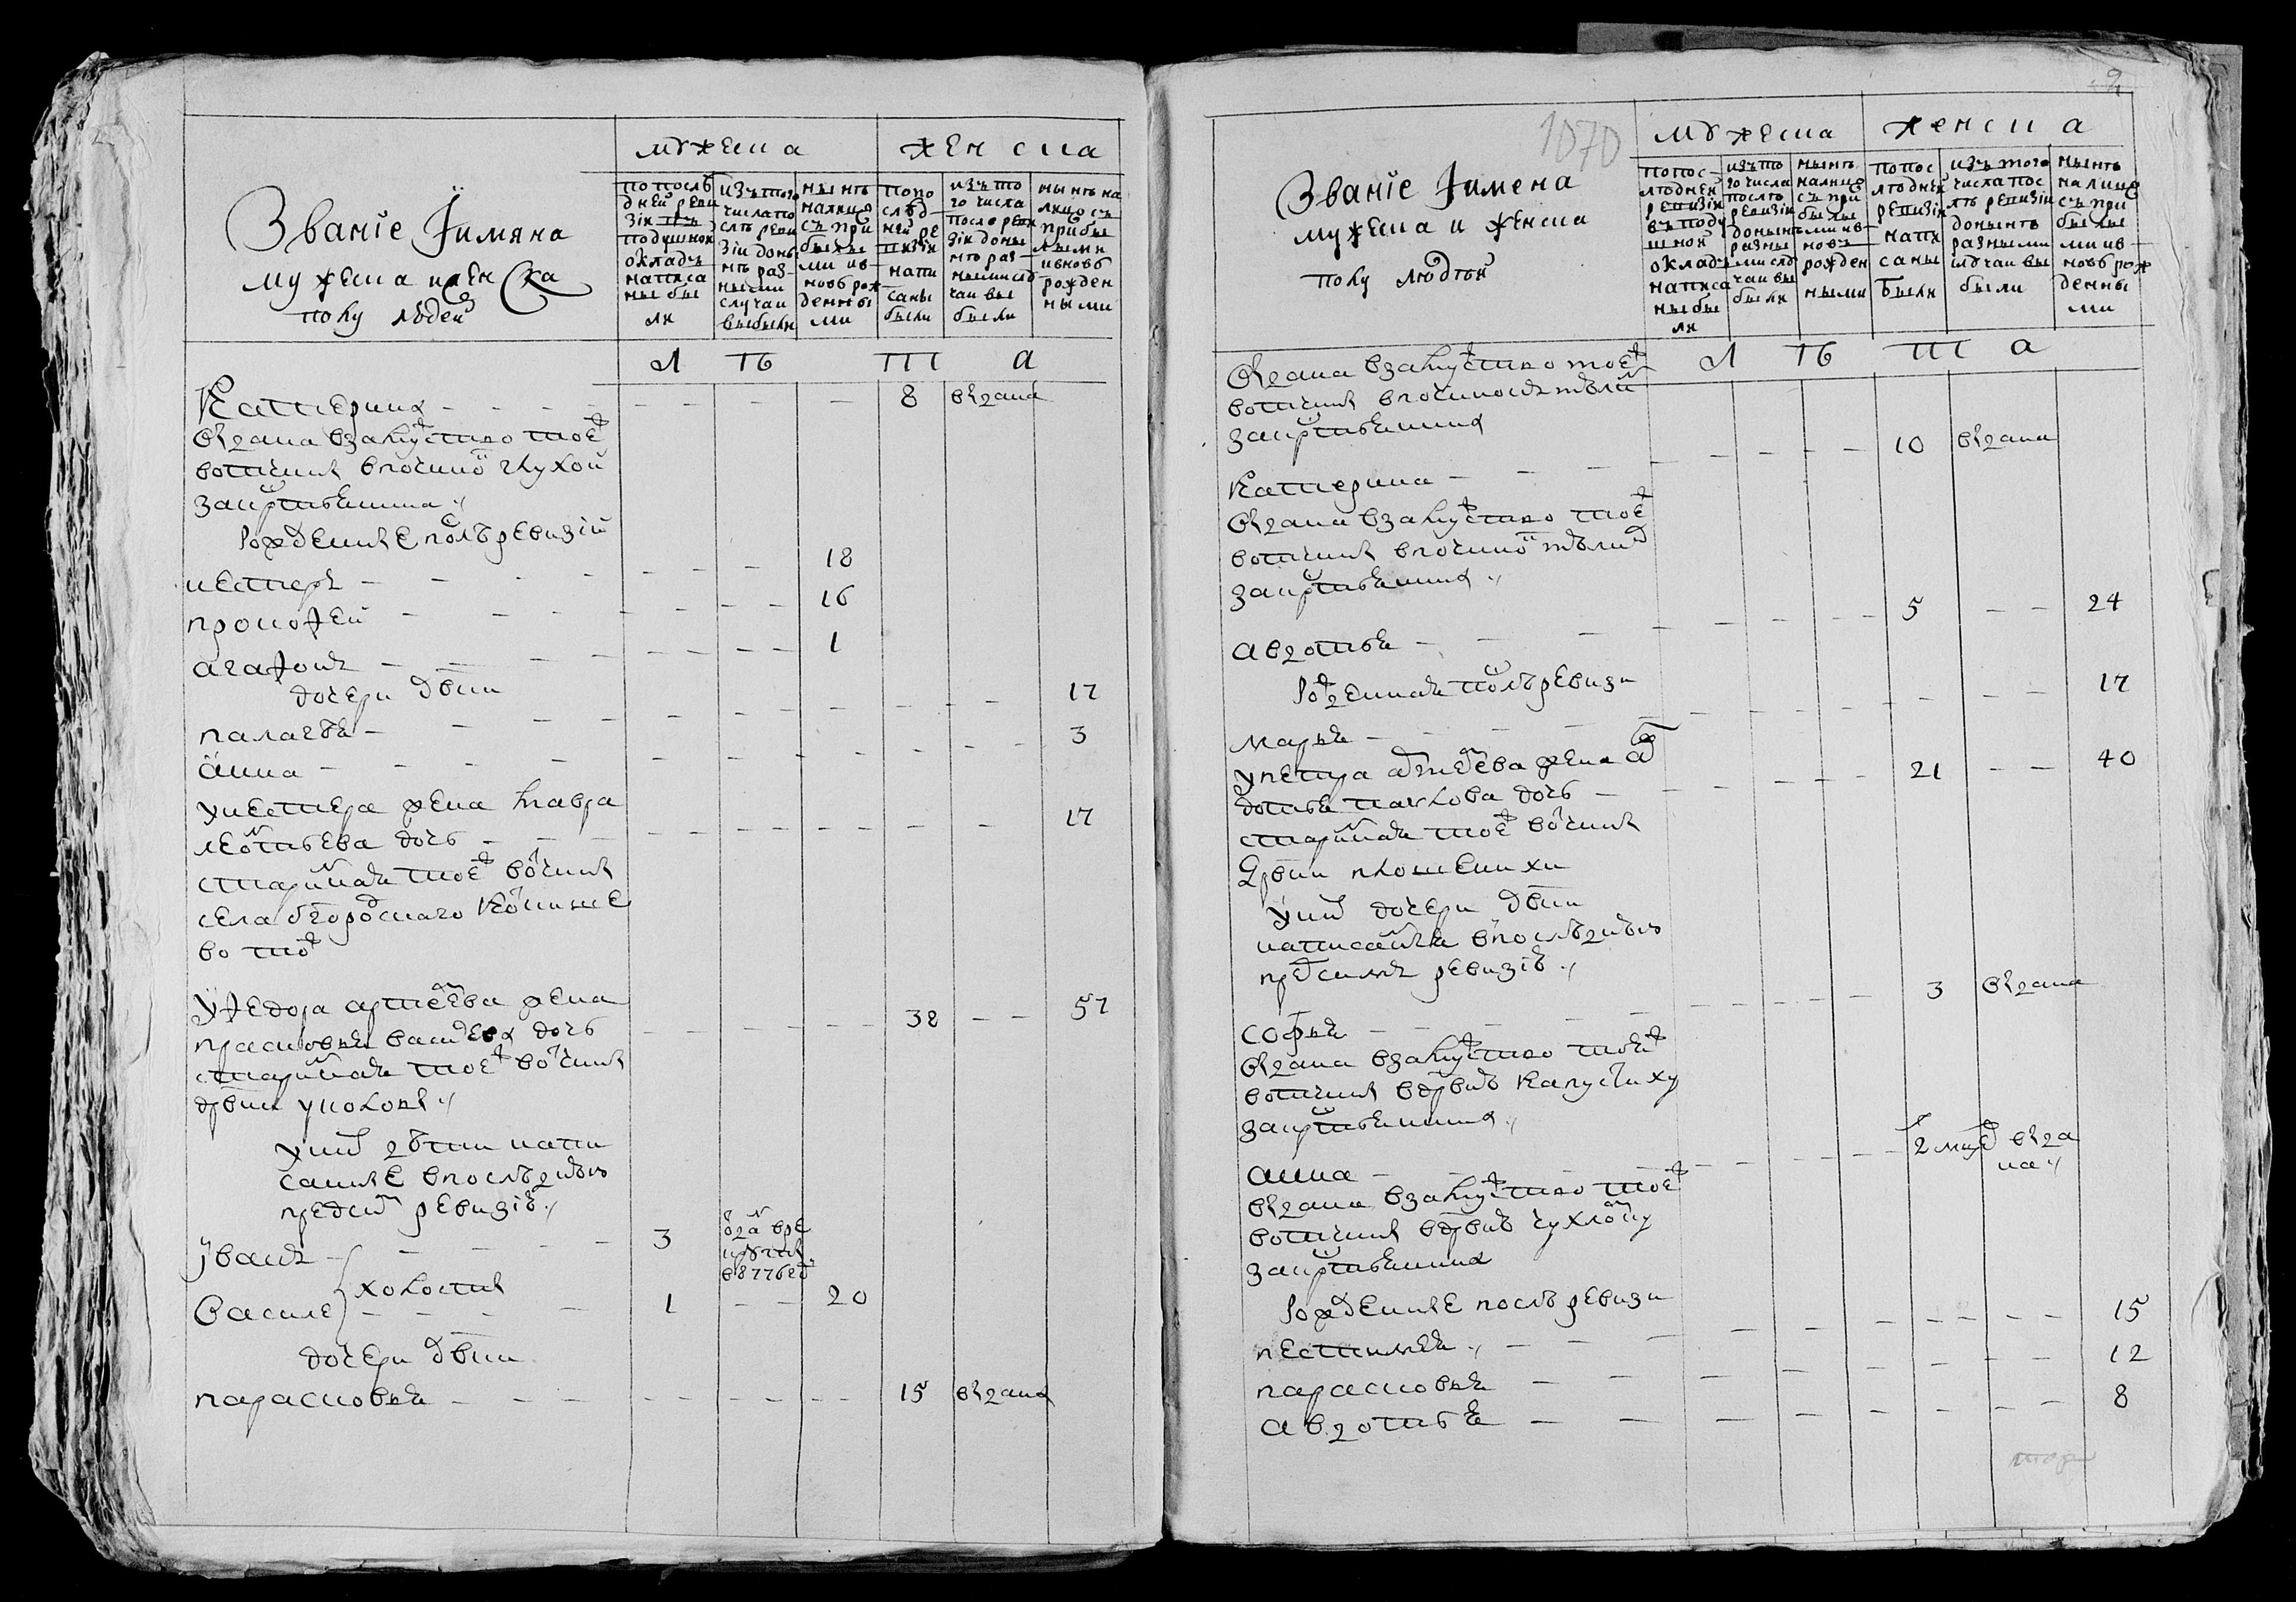 Званіе Їимяна
мужеска иженска
полу людей
мужеска
женска
попослѣ
дней реви
зіи въ
подушном
окладѣ
написа
ны бы
ли
изъ того
числа по
слѣ реви
зіи доны
нѣ раз
ными
случаи
выбыли
нынѣ
налицо
съ при
былы
ми ив
новь рож
денны
ми
попо
слѣд
ней ре
визіи
напи
саны
были
изъ то
го числа
после реви
зіи доны
нѣ раз
нымислу
чаи вы
были
нынѣ на
лицо съ
прибы
лыми
ивновь
рожден
ными
л ѣ т а
Катерина 8 выдана
выдана взамужство тоеж
вотчины впочинок глухой
закрстьянина
рожденные послѣ ревизіи
нестеръ 18
прокофей 16
агафонъ 1
дочери двки
палагѣя 17
анна 3
унестера жена клавра
леонтьева дочь 17
старинная тоеж вотчины
села бгородскаго
во тож
уфедора артемева жена
прасковья васильева дочь 38 57
старинная тоеж вотчины
дрвни
унихъ дѣти напи
санные впослѣднюю
предсимъ ревизію
Їванъ 3 одан вре
круты
в 1776 год
холосты
Василе 1 20
дочери двки
парасковья 15 выдана
1070
Званіе Їимена
мужеска и женска
полу людѣй
мужеска
женска
попос
лѣдней
ревизіи
въ поду
шной
окладъ
написа
ны бы
ли
изъ то
го числа
послѣ
ревизіи
донынѣ
разны
ми слу
чаи вы
были
нынѣ
налицо
съ при
былы
ми ив
новь
рожден
ными
попос
лѣдней
ревизіи
напи
саны
были
изъ того
числа пос
лѣ ревизіи
донынѣ
разными
случаи вы
были
нынѣ
налицо
съ при
былы
ми ив
новь рож
денны
ми
л ѣ т а
выдана взамужство тоеж
вотчины впочинок
закрстьянина
Катерина 10 выдана
выдана взамужство тоеж
вотчины впочинок
закрстьянина
авдотья 5 24
рожденная послѣ ревизи
марья 17
упетра артемева жена ав
дотья павлова дочь 21 40
старинная тоеж вотчины
дрвни плошенихи
унихъ дочери двки
написанныя впослѣднюю
предсимъ ревизію
софья 3 выдана
выдана взамужство тоеж
вотчины вдрвню капустиху
закрстьянина
анна 2 мнсд выда
на
выдана взамужство тоеж
вотчины вдрвню
закрстьянина
рожденные послѣ ревизи
пестимѣя 15
парасковья 12
авдотья 8